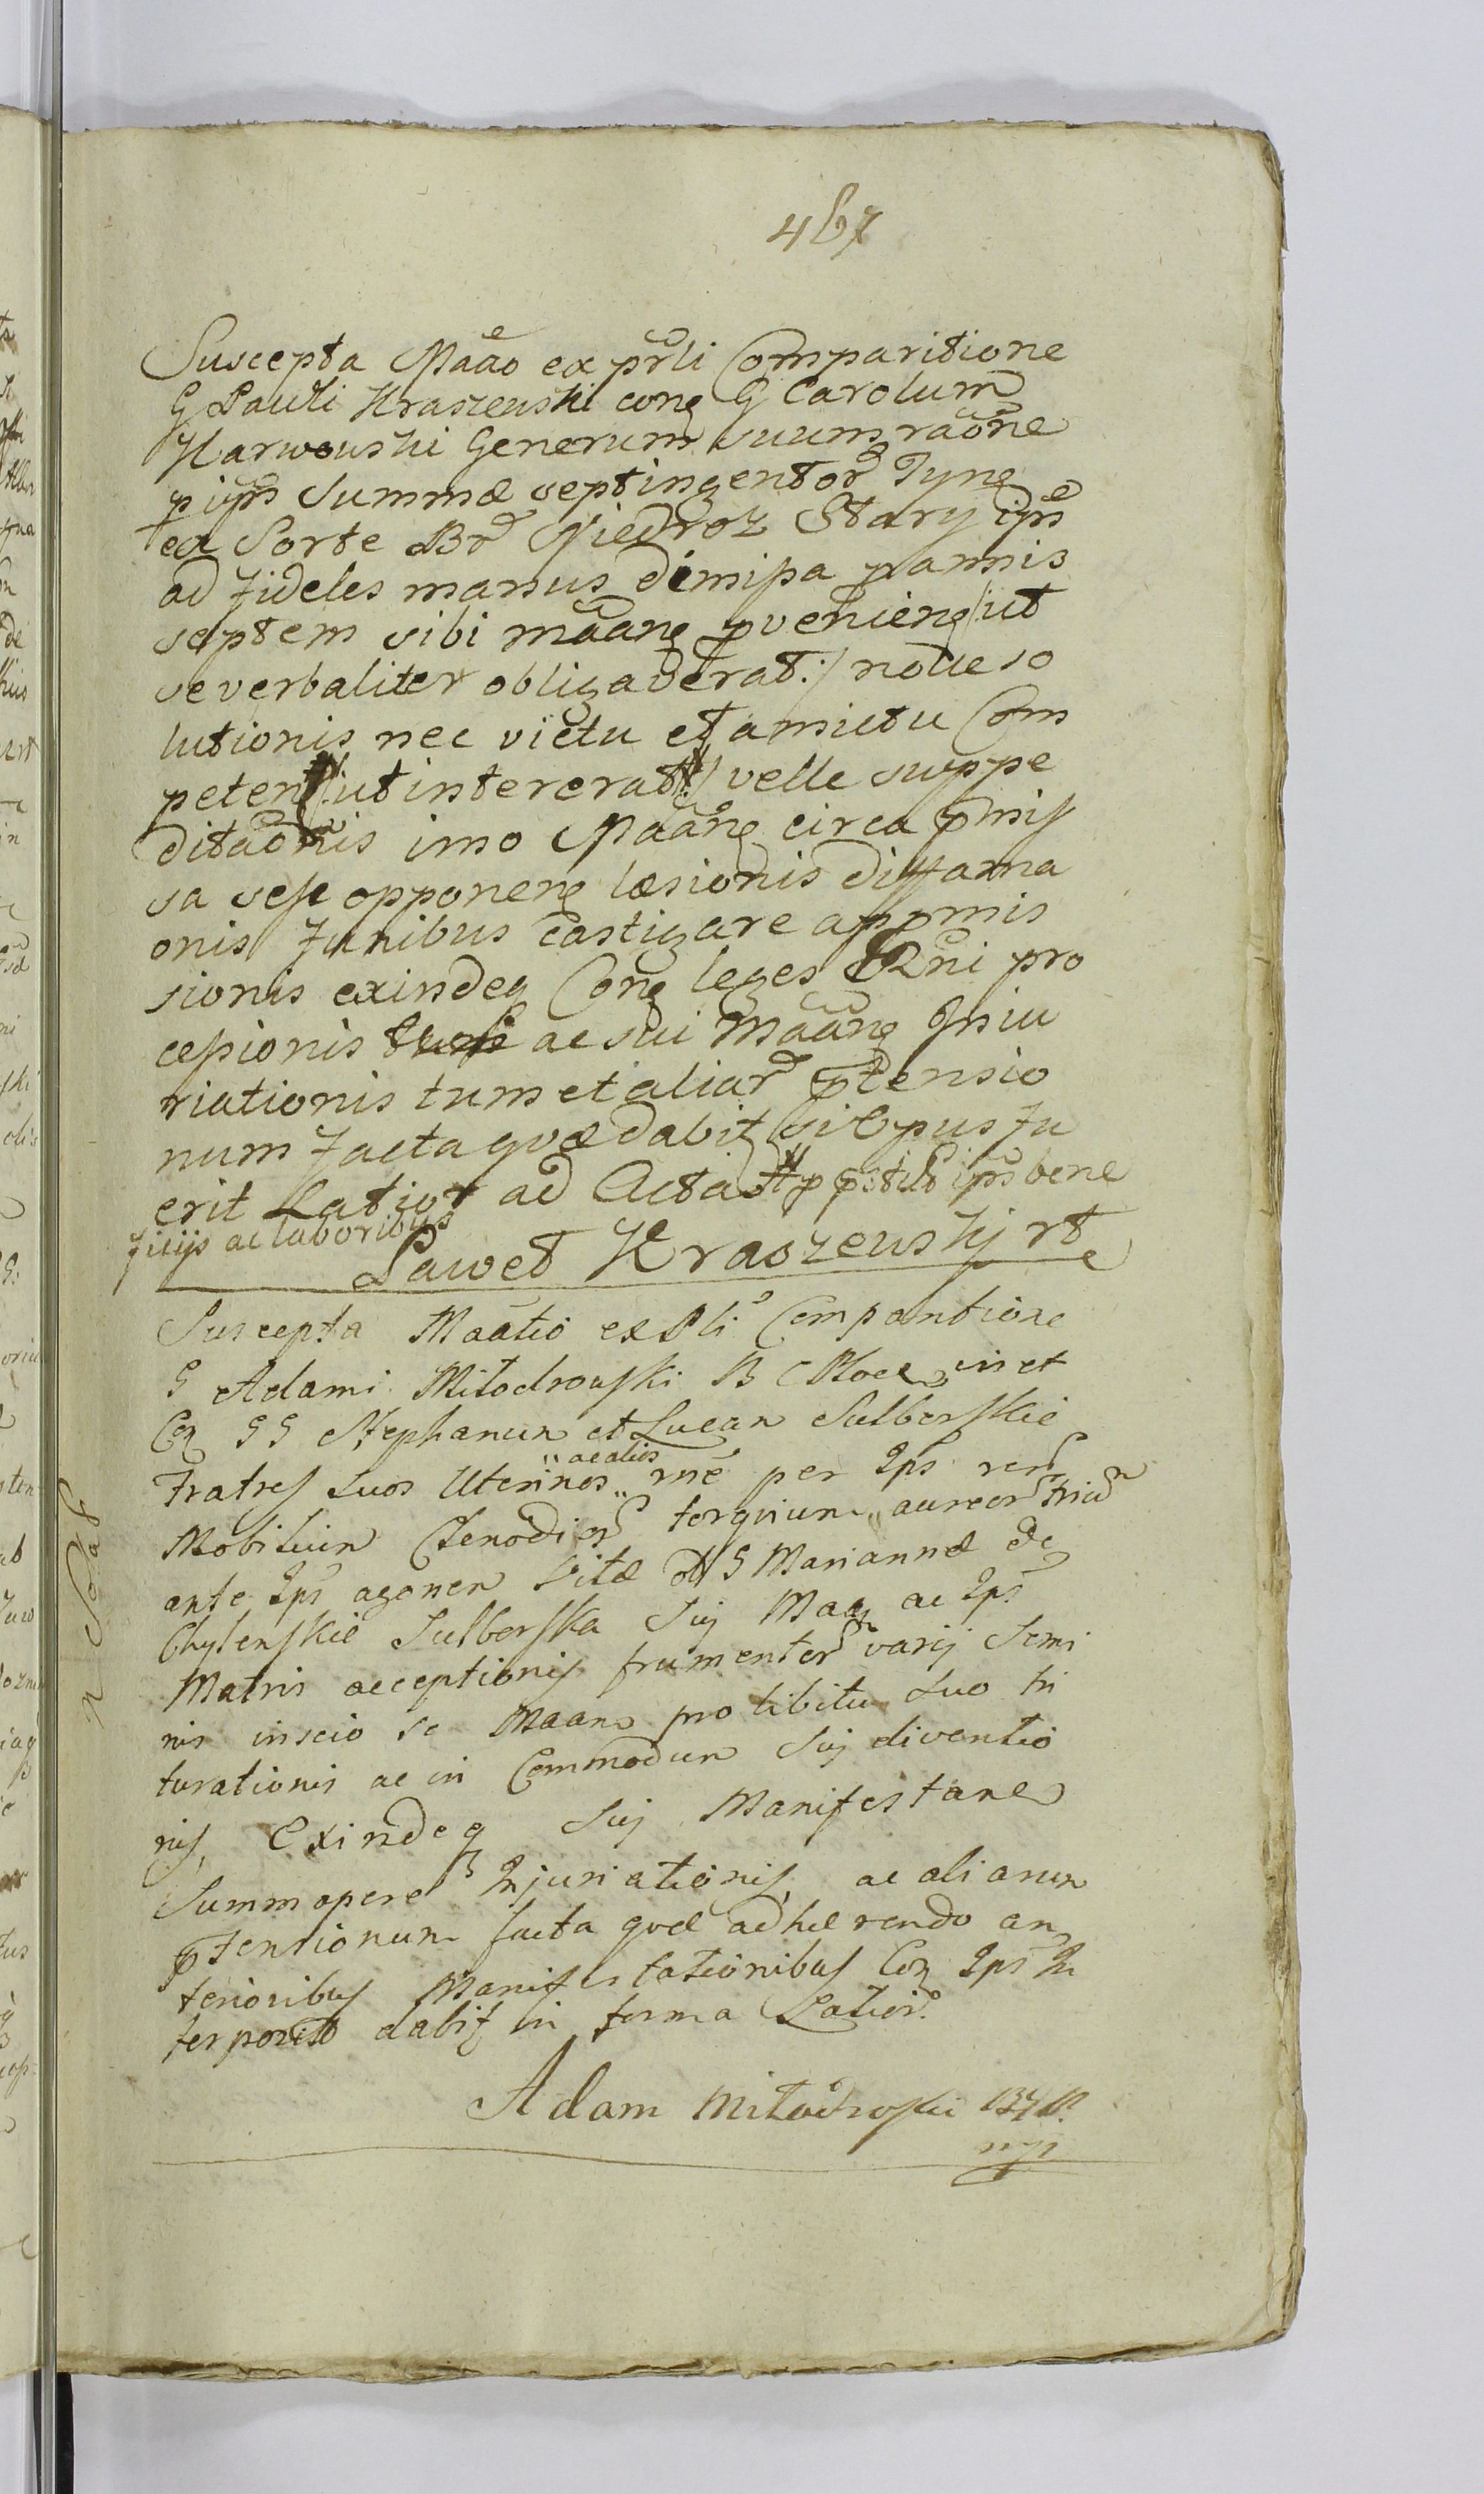 467
Suscepta Mãao ex prĩli Comparitione
G Pauli Kraszewski cong G Carolum
Karwowski Generum suum rãone
p ipm summæ septingentor Tyng
ex Sorte Br Niedroz Stary ipse
ad fideles manus dimissa p annis
septem sibi mãang pveniẽng /ut
se verbaliter obligaverat:/ nolle so
lutionis nec victu et amictu Com
peten /:ut intererat:/ velle suppe
ditaõnis imo Maãng circa pmis
sa sese opponeng læsionis diffama
onis funibus castigare appmis
sionis exindeq Cong leges Rni pro
cessionis ac sui Maãng Iniu
riationis tum et aliar ptensio
num facta qvæ dabit si opus fu
erit Latior ad Acta p ipm bene
ficijs ac laboribus
Paweł Kraszewskj rt
Suscepta Maatio ex Pli Comparitione
G Adami Miłodrowski B C Ploce
Con GG Stephanum et Lucan Sulberskie
Fratres Suos Uterinos " ac alios " rne per Ips rer
Mobilium Clenodior torqvium aureor triũ
ante Ips agonen Vitæ G Mariannæ de
Chylenskie Sulberska Suj Maan ac Ips
Matris acceptionis frumentor varij Semi
nis inscio se Maan pro libitu Suo tri
turationis ac in Commodum Suj diventio
nis, Exindeq Suj Manifestane
Summopere Injuriationis, ac aliarum
ptensionum facta qvæ adhærendo an
terioribus Manifestationibus Con Ips In
terposit dabit in forma Latior.
Adam Miłodroski
mp